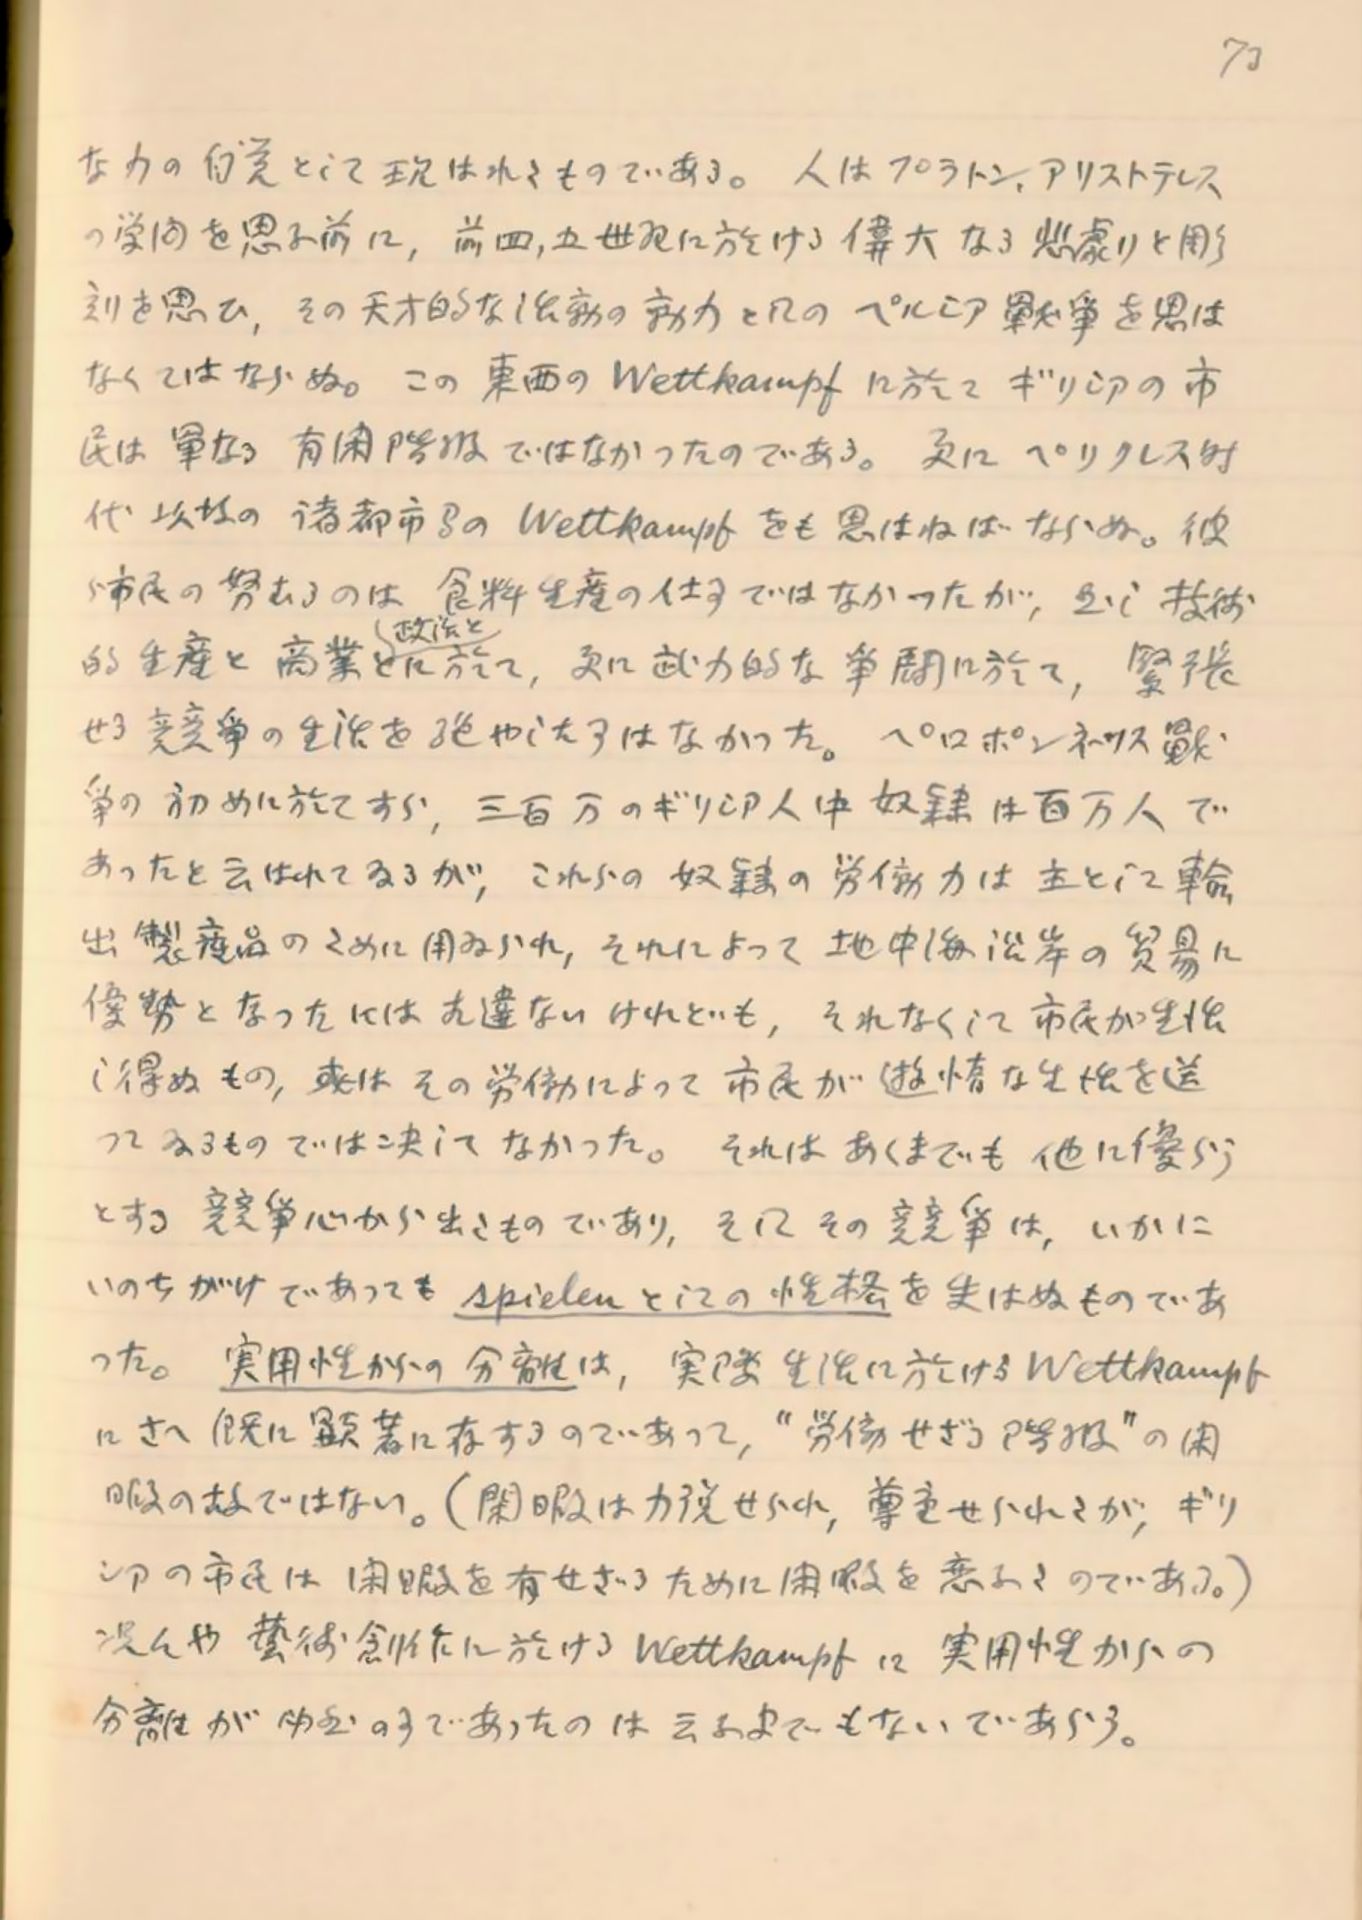 73
な力の自覚として現はれたものである。 人はプラトン、アリストテレス
の学問を思ふ前に, 前四,五世紀に於ける偉大なる悲劇りと彫
刻を思ひ, その天才的な活動の動力としてのペルシア戰爭を思は
なくてはならぬ。 この東西の Wettkampf に於て ギリシアの市
民は單なる有閑階級ではなかったのである。 更に ペリクレス時
代以後の諸都市間の Wettkampf をも思はねばならぬ。彼
ら市民の努むるのは 食料生産の仕事ではなかったが, 然し技術
政治と
的生産と商業とに於て, 更に武力的な爭鬪に於て, 緊張
せる競爭の生活を絶やした事はなかった。 ペロポンネソス戰
爭の初めに於てすら, 三百万のギリシア人中奴隷は百万人で
あったと云はれてゐるが, これらの奴隷の労働力は主として輸
出製産品のために用ゐられ, それによって地中海沿岸の貿易に
優勢となったには相違ないけれども, それなくして市民が生活
し得ぬもの, 或はその労働によって市民が遊惰な生活を送
つてゐるものでは決してなかった。 それはあくまでも他に優らう
とする競爭心から出たものであり, そしてその競爭は, いかに
いのちがけであっても spielen としての性格を失はぬものであ
った。 実用性からの分離は, 実際生活に於ける Wettkampf
にさへ既に顕著に存するのであって, "労働せざる階級"の閑
暇の故ではない。(閑暇は力説せられ, 尊重せられたが, ギリ
シアの市民は閑暇を有せざるために閑暇を恋ふたのである。)
況んや藝術創作に於ける Wettkampf に実用性からの
分離が必至の事であったのは云ふまでもないであらう。